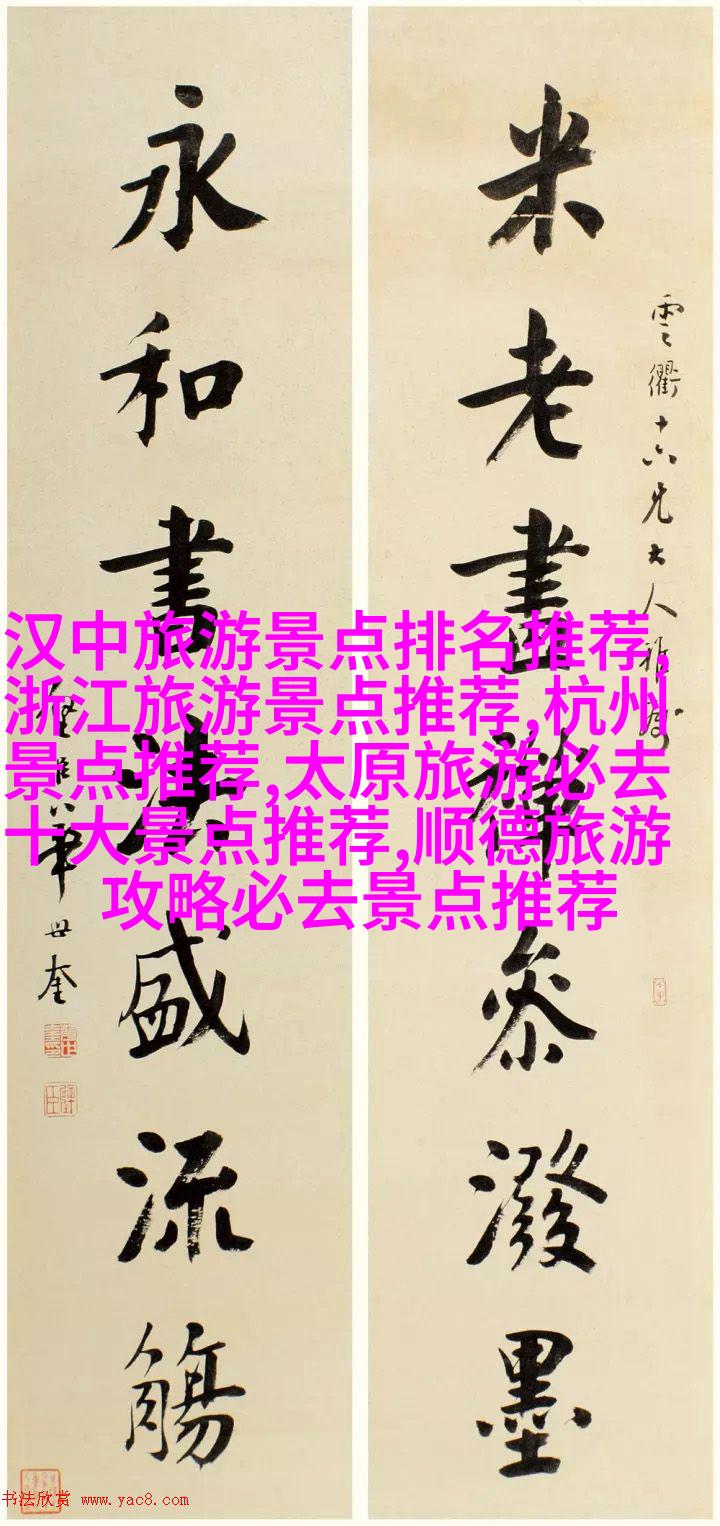 米老畫禪參潑墨
雲衢十六兄大人雅屬
永和書盛流觴
璧臣華世奎
汉中旅游景点排名推荐,
浙江旅游景点推荐,杭州
景点推荐,太原旅游必去
十大景点推荐,顺德旅游
攻略必去景点推荐
书法欣赏 www.yac8.com